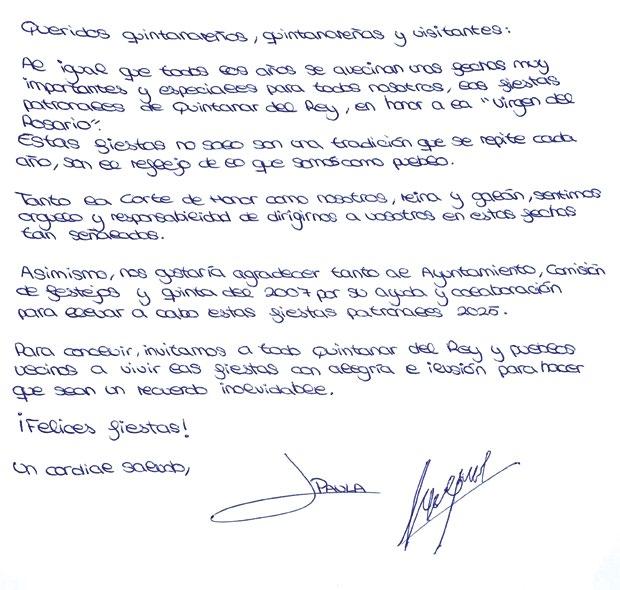 Queridos quintanareños, quintanareñas y visitantes:
Al igual que todos los años se avecinan unas fechas muy
importantes y especiales para todos nosotros, las fiestas
patronales de Quintanar del Rey, en honor a la "Virgen del
Rosario".
Estas fiestas no solo son una tradición que se repite cada
año, son el reflejo de lo que somos como pueblo.
Tanto la Corte de Honor como nosotros, reina y galán, sentimos
orgullo y responsabilidad de dirigirnos a vosotros en estas fechas
tan señaladas.
Asimismo, nos gustaría agradecer tanto al Ayuntamiento, Comisión
de festejos y quinta del 2007 por su ayuda y colaboración
para llevar a cabo estas fiestas patronales 2025.
Para concluir, invitamos a todo Quintanar del Rey y pueblos
vecinos a vivir las fiestas con alegría e ilusión para hacer
que sean un recuerdo inolvidable.
¡Felices fiestas!
Un cordial saludo,
PAULA